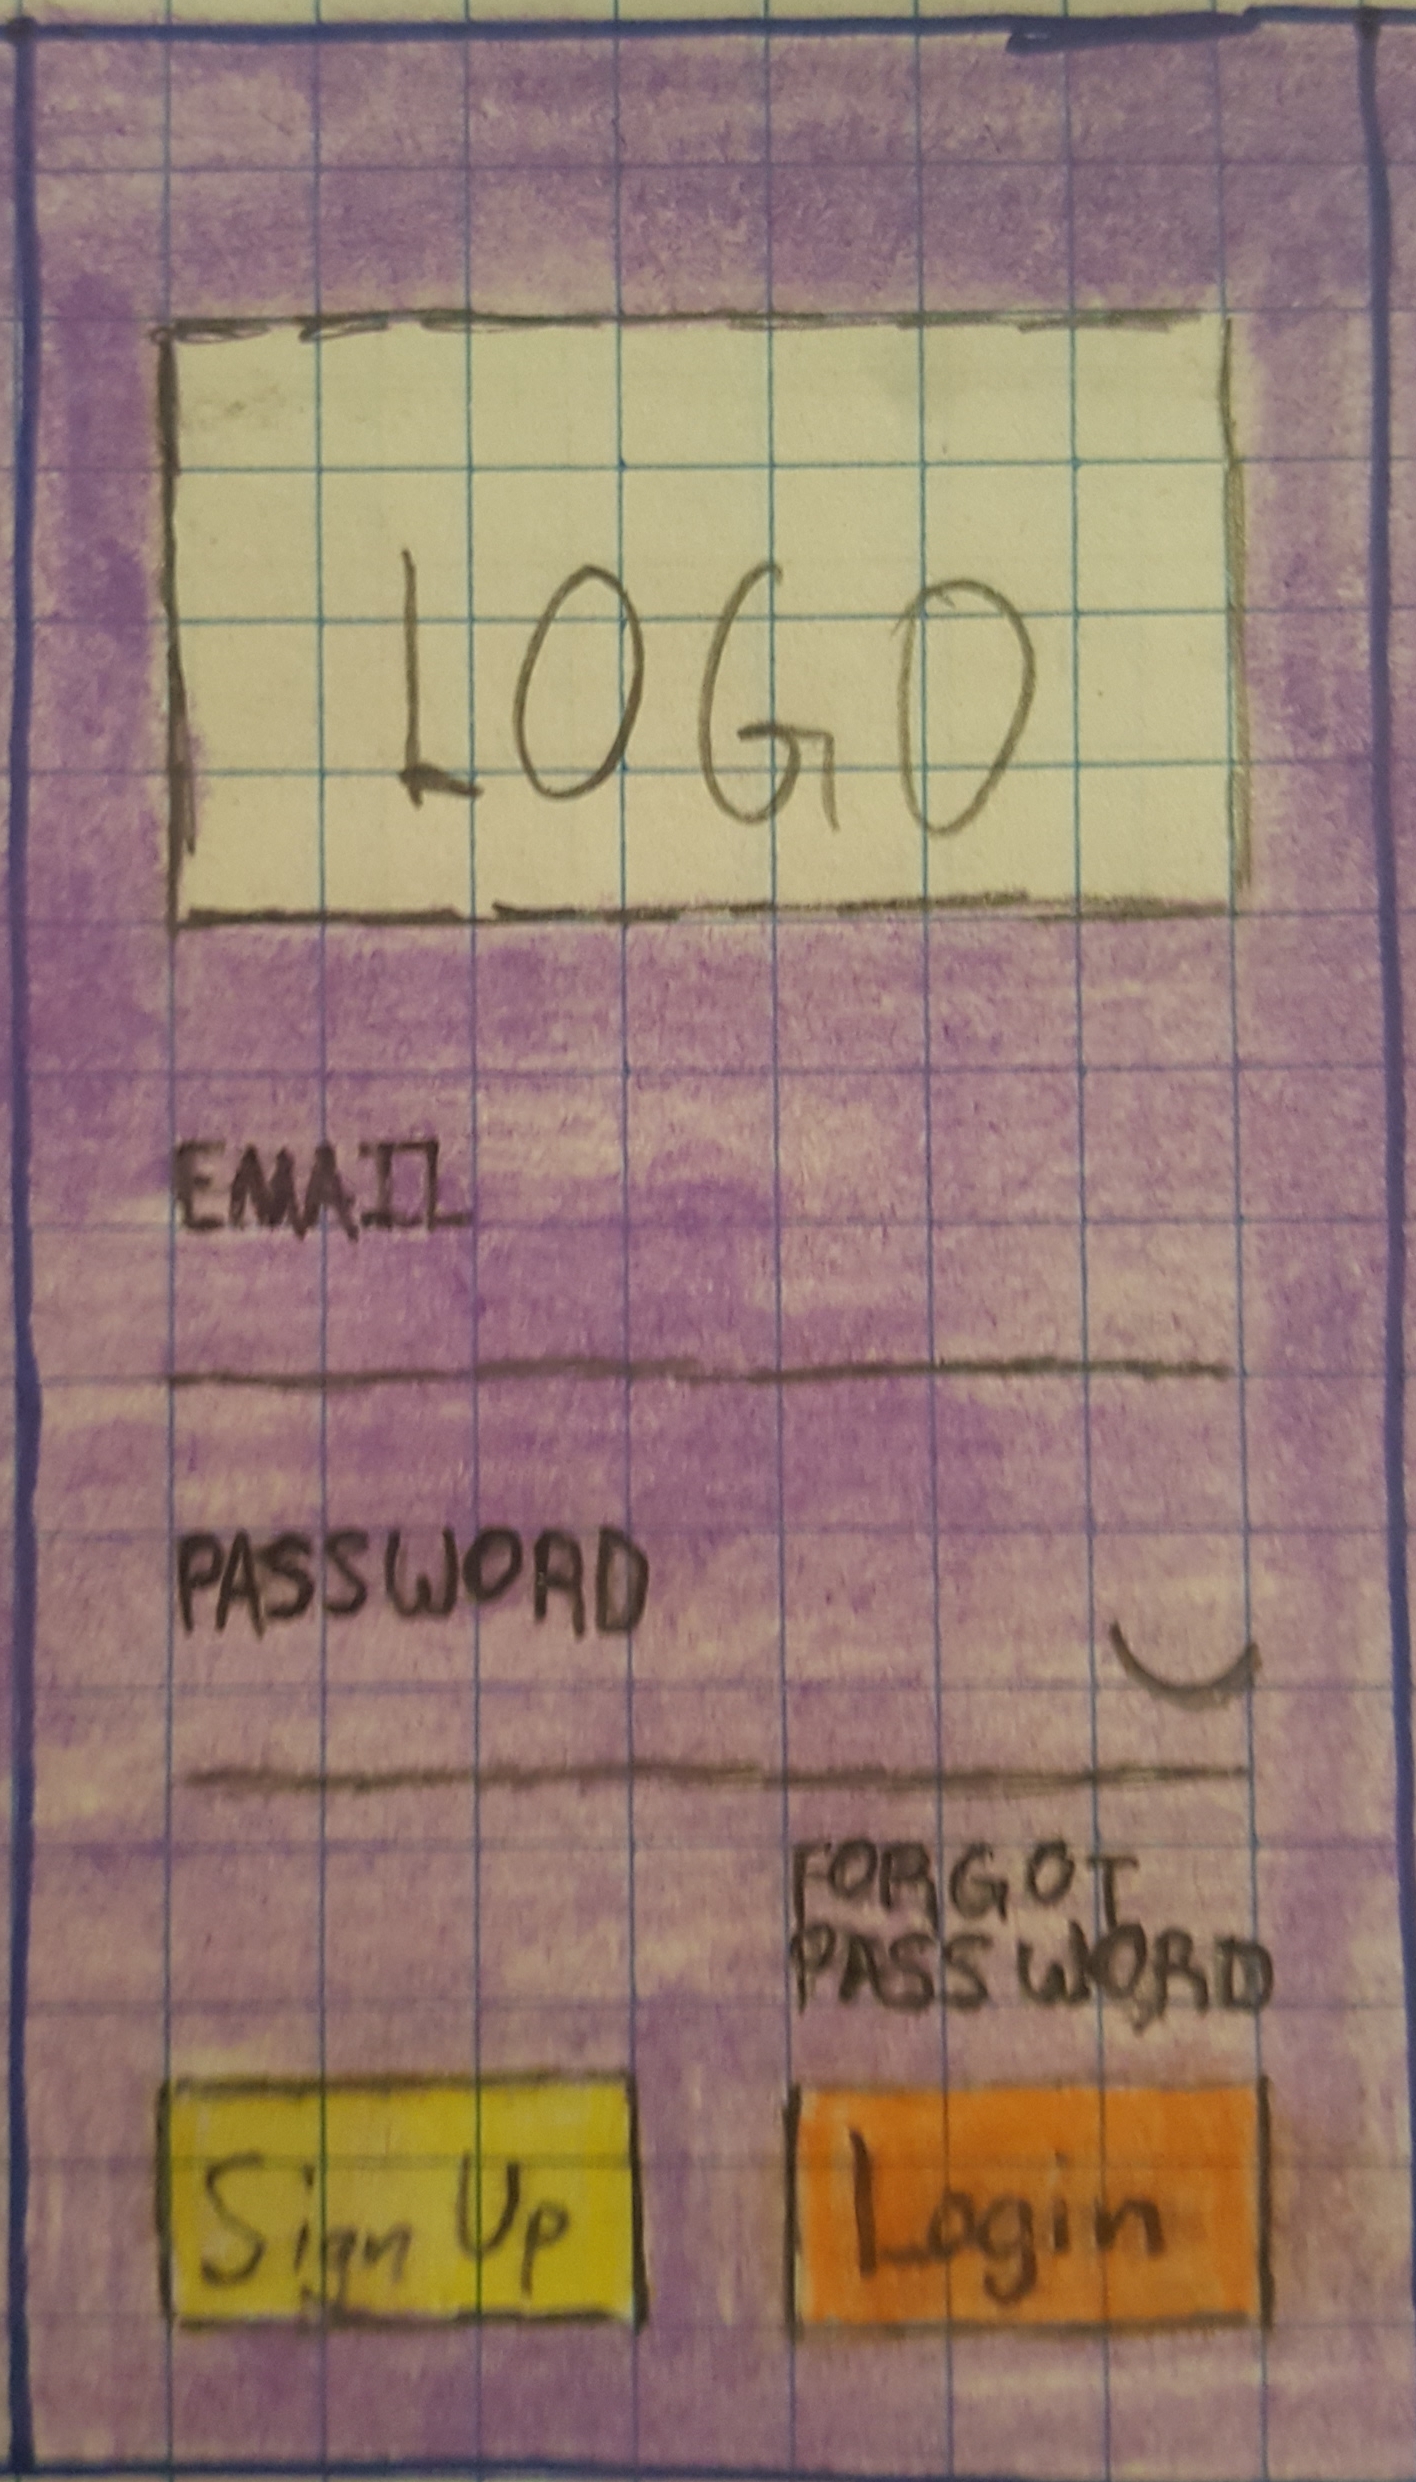 LOGO
EMAIL
PASSWORD
FORGOT
PASSWORD
Sign Up
Login